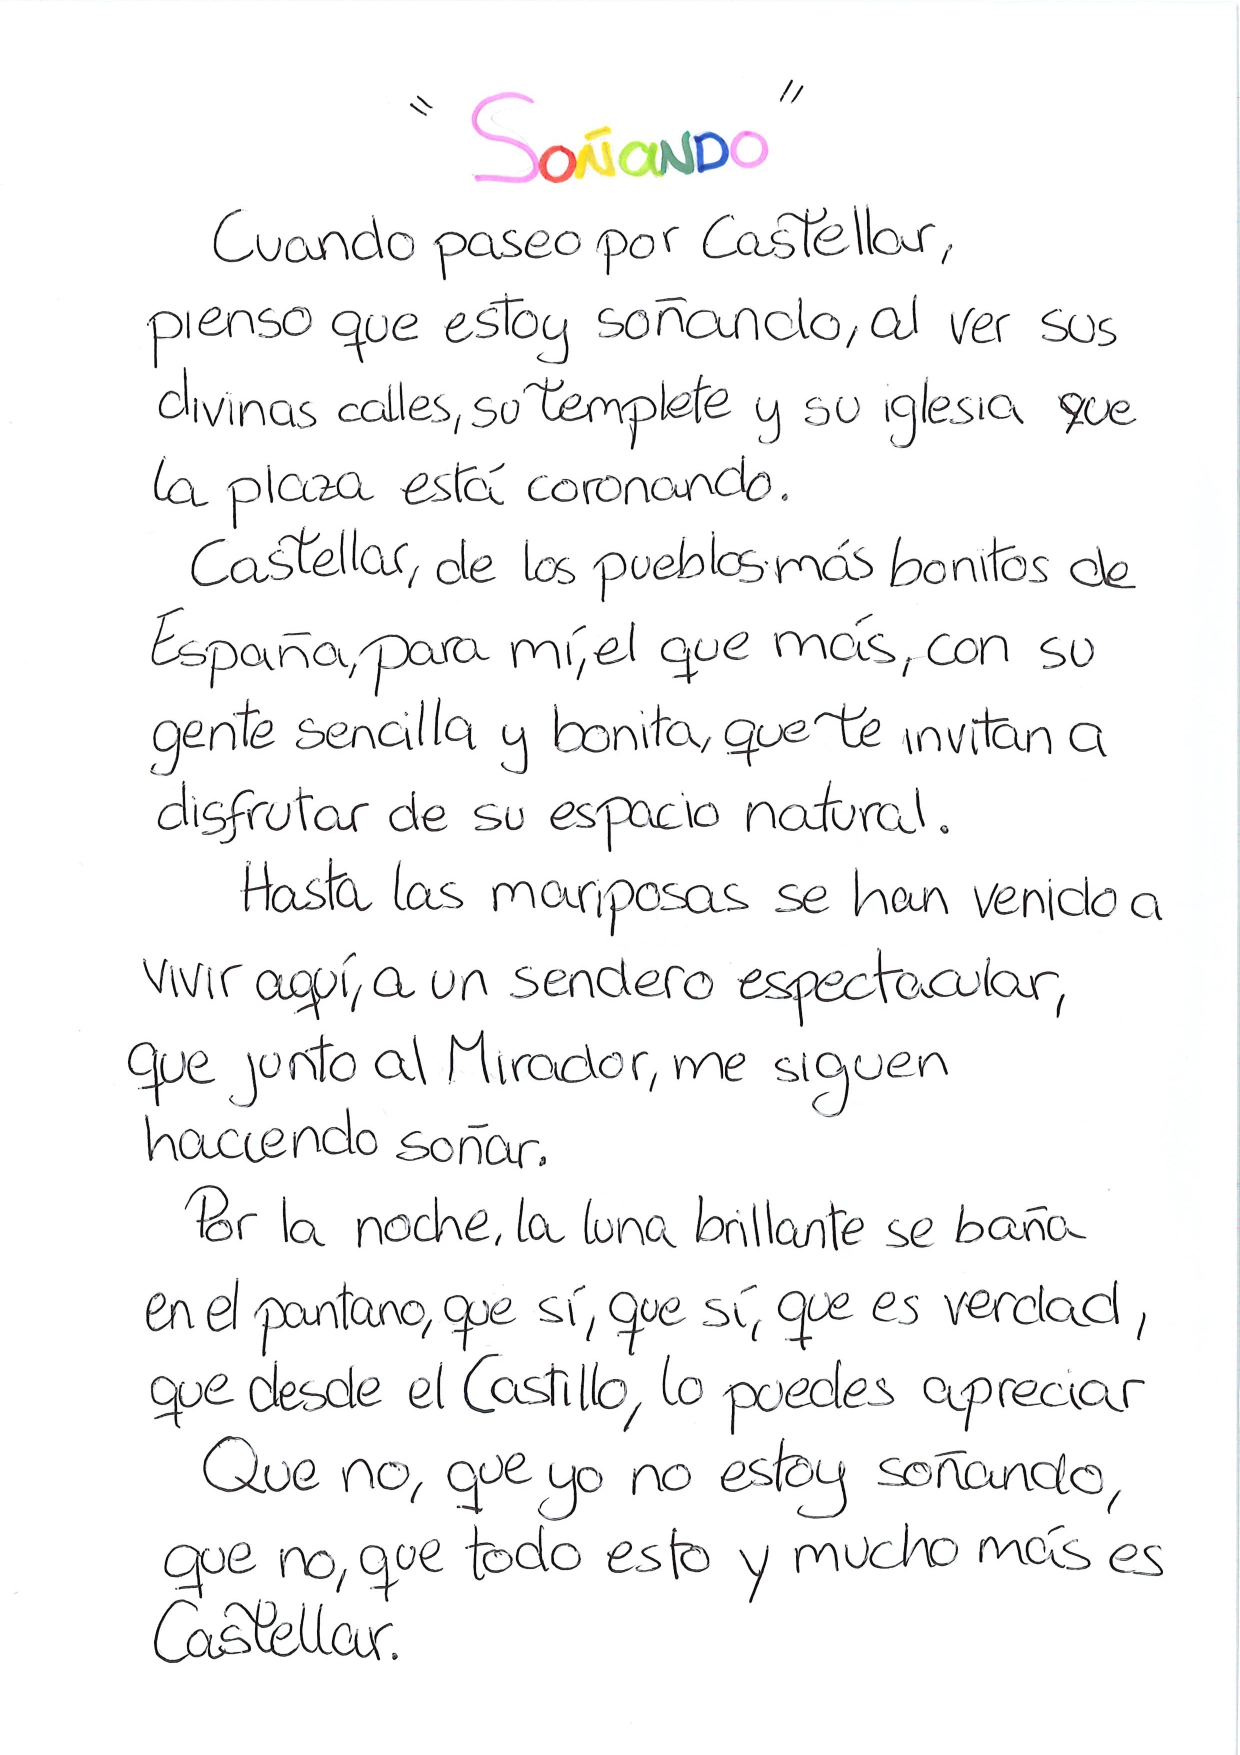 "Soñando"
Cuando paseo por Castellar,
pienso que estoy soñando, al ver sus
divinas calles, su templete y su iglesia que
la plaza está coronando.
Castellar, de los pueblos más bonitos de
España, para mí, el que más, con su
gente sencilla y bonita, que te invitan a
disfrutar de su espacio natural.
Hasta las mariposas se han venido a
vivir aquí, a un sendero espectacular,
que junto al Mirador, me siguen
haciendo soñar.
Por la noche, la luna brillante se baña
en el pantano, que sí, que sí, que es verdad,
que desde el Castillo, lo puedes apreciar
Que no, que yo no estoy soñando,
que no, que todo esto y mucho más es
Castellar.